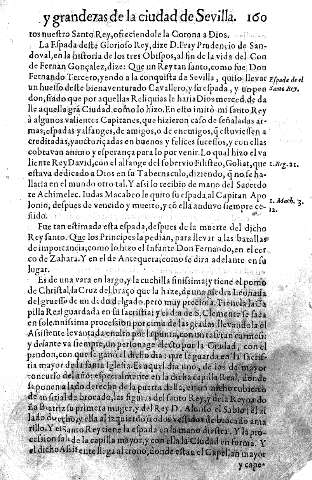 y grandezas de la ciudad de Sevilla. 160
tos nuestro Santo Rey, ofreciendole la Corona a Dios.
La Espada deste Glorioso Rey, dize D. Fray Prudencio de San-
doval, en la historia de los tres Obispos, al fin de la vida del Con
de Fernan Gonçalez, dize: Que un Rey tan santo, como fue Don
Fernando Tercero, yendo a la conquista de Sevilla, quiso llevar
un huesso deste bienaventurado Cavallero, y su espada, y un pen
don, fiado que por aquellas Reliquias le haria Dios merced, de da
lle aquella grã Ciudad, como lo hizo. En esto imitó mi santo Rey
à algunos valientes Capitanes, que hizieron caso de señaladas ar-
mas, espadas y alfanges, de amigos, o de enemigos, q̃ estuviessen a
creditadas, y autorizadas en buenos y felices sucessos, y con ellas
cobravan animo y esperança para lo por venir. Lo qual hizo el va
liente Rey David, con el alfange del sobervio Filisteo, Goliat, que
estava dedicado a Dios en su Tabernaculo, diziendo, q̃ no se ha-
llaria en el mundo otro tal. Y assi lo recibio de mano del Sacerdo
te Achimelec. Iudas Macabeo le quito su espada, al Capitan Apo
lonio, despues de vencido y muerto, y cõ ella anduvo siempre ce-
ñido.
Espada de el
Santo Rey.
1. Reg. 21.
1. Mach. 3.
12.
Fue tan estimada esta espada, despues de la muerte del dicho
Rey santo. Que los Principes la pedian, para llevar a las batallas
de importancia, como lo hizo el Infante Don Fernando, en el cer
co de Zahara. Y en el de Antequera, como se dira adelante en su
lugar.
Es de una vara en largo, y la cuchilla finissima; y tiene el pomo
de Christal, la Cruz del braço que la haze, de una piedra
del gruesso de un dedo delgado, pero muy preciosa. Tienela la Ca
pilla Real guardada en su sacristia; y el dia de S. Clemente se saca
en solenissima procession por cima de las gradas, llevandola el
Assistente levantada en alto por la punta, con un tafetan carmesi:
y delante va siempre, un personage electo por la Ciudad, con el
pendon, con que se ganó el dicho dia: que se guarda en la Sacris-
tia mayor de la santa Iglesia. Es aquel dia uno, de los de mayor
concurso del año: especialmente en la dicha capilla Real, donde
se ponen a lado derecho de la puerta della, en un nicho cubierto
de un sitial de brocado, las figuras del santo Rey, y de la Reyna do
ña Beatriz su primera muger, y del Rey D. Alonso el Sabio; el al
lado derecho, y ella al izquierdo, todos vestidos de brocado ama
rillo. Y el Santo Rey tiene la espada en la mano diestra. Y la pro-
cession sale de la capilla mayor, y con ella la Ciudad en forma. Y
el dicho Assistente llega al trono, donde esta el Capellan mayor
y cape-